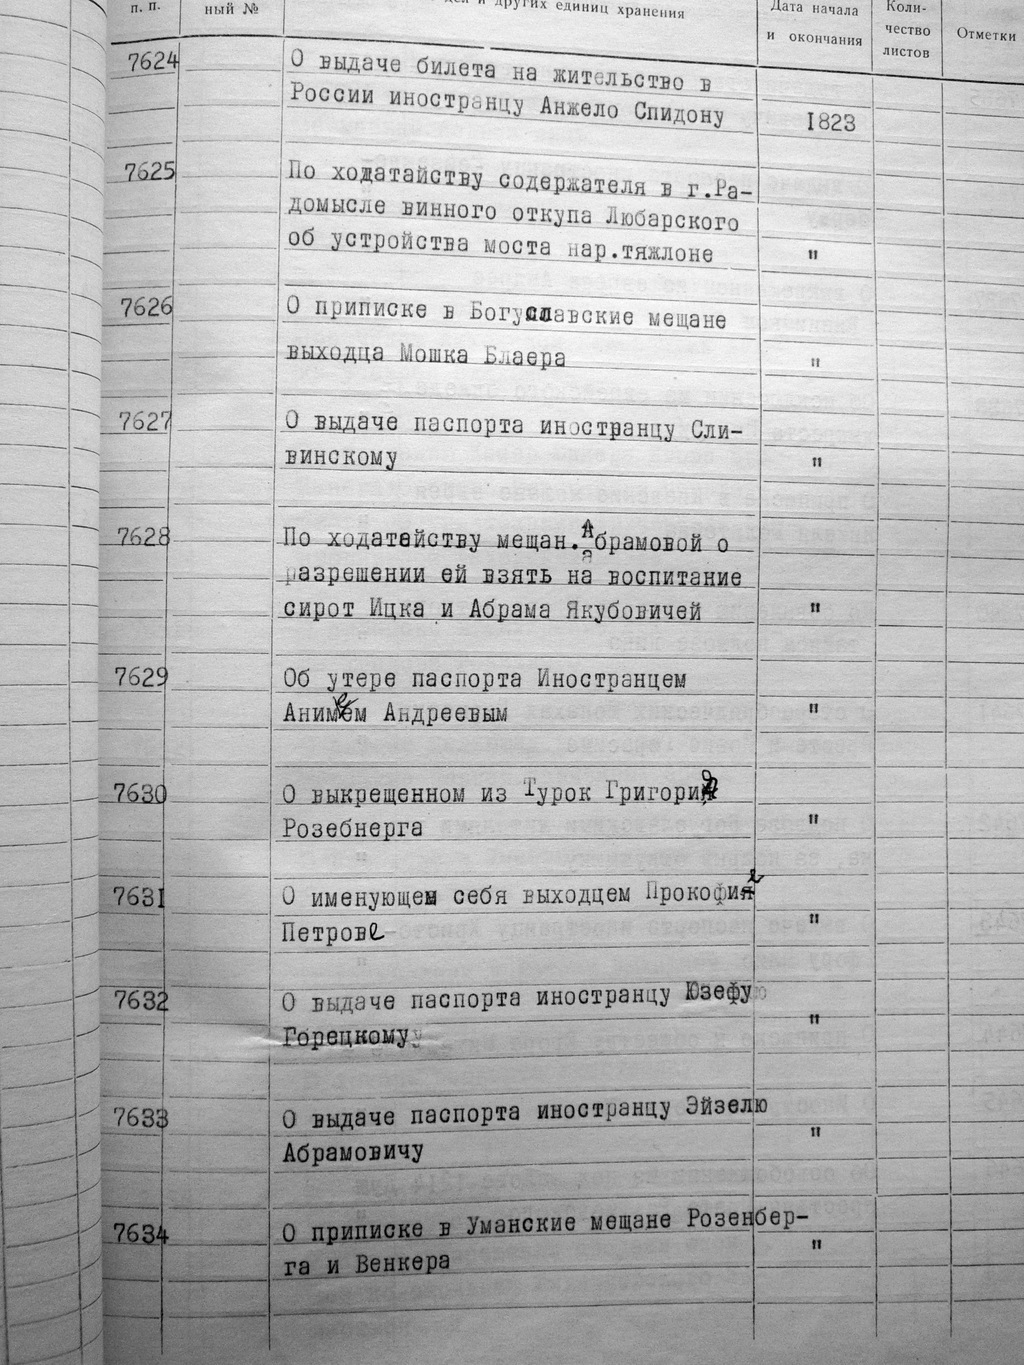 п. п.
ный №
и других единиц хранения
Дата начала
и окончания
Коли-
чество
листов
Отметки
7624
О выдаче билета на жительство в
России иностранцу Анжело Спидону
1823
7625
По ходатайству содержателя в г.Ра-
домысле винного откупа Любарского
об устройства моста нар.тяжлоне
"
7626
О приписке в Богуславские мещане
выходца Мошка Блаера
"
7627
О выдаче паспорта иностранцу Сли-
винскому
"
7628
По ходатейству мещан.Абрамовой о
разрешении ей взять на воспитание
сирот Ицка и Абрама Якубовичей
"
7629
Об утере паспорта Иностранцем
Анимем Андреевым
"
7630
О выкрещенном из Турок Григории
Розебнерга
"
7631
О именующем себя выходцем Прокофие
Петрове
"
7632
О выдаче паспорта иностранцу Юзефу
Горецкому
"
7633
О выдаче паспорта иностранцу Эйзелю
Абрамовичу
"
7634
О приписке в Уманские мещане Розенбер-
га и Венкера
"